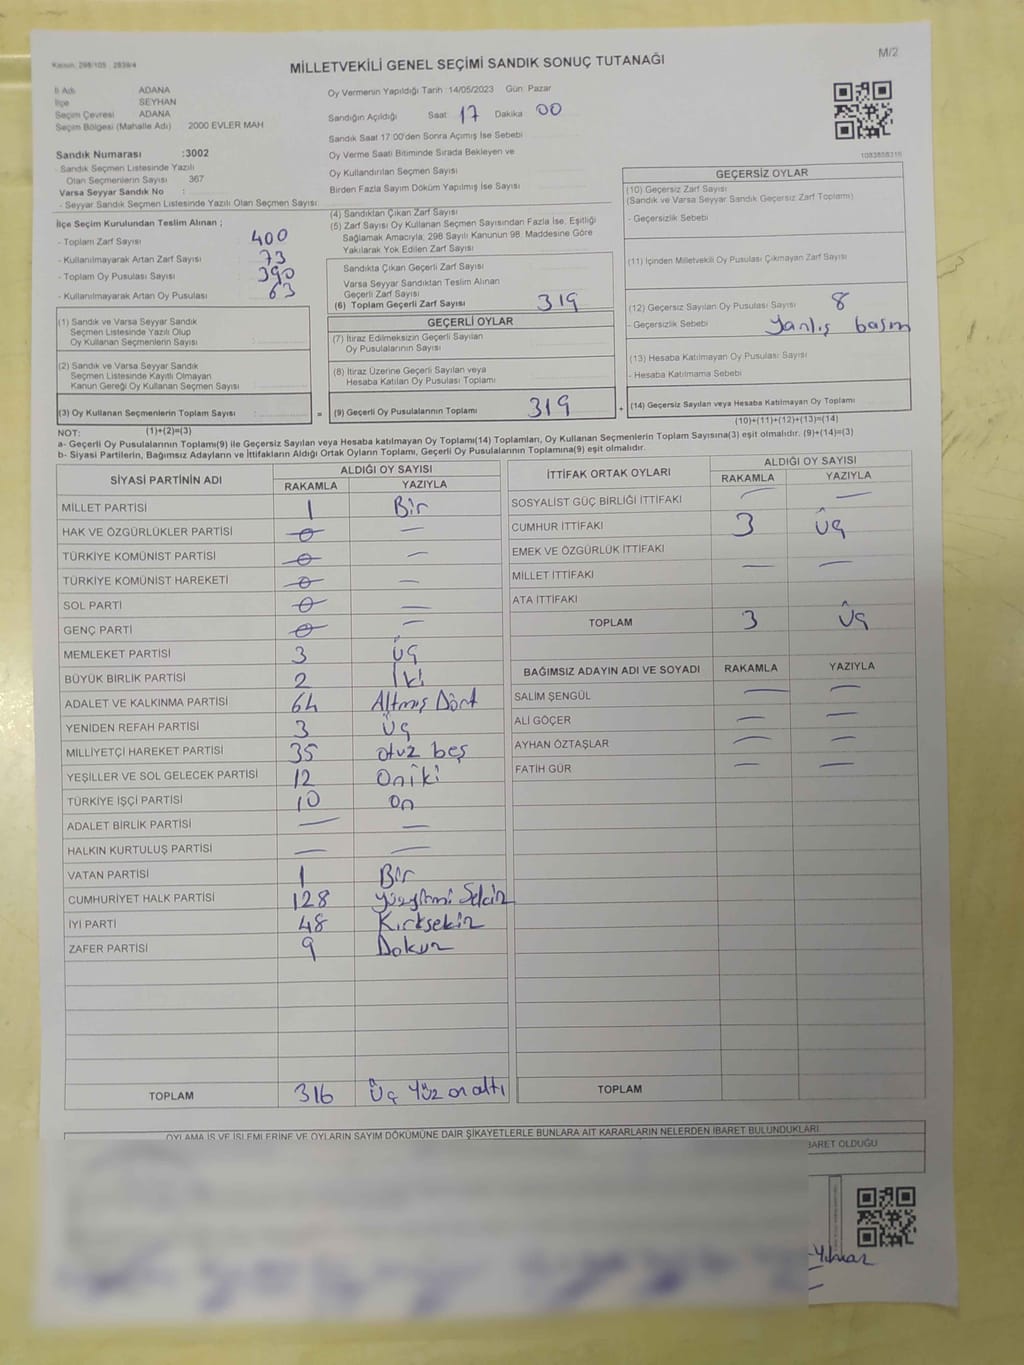 Kanun: 298/105 , 2839/4
M/2
MİLLETVEKİLİ GENEL SEÇİMİ SANDIK SONUÇ TUTANAĞI
İl Adı ADANA
İlçe SEYHAN
Seçim Çevresi ADANA
Seçim Bölgesi (Mahalle Adı) 2000 EVLER MAH
Sandık Numarası :3002
- Sandık Seçmen Listesinde Yazılı
Olan Seçmenlerin Sayısı 367
Varsa Seyyar Sandık No :
- Seyyar Sandık Seçmen Listesinde Yazılı Olan Seçmen Sayısı
Oy Vermenin Yapıldığı Tarih :14/05/2023 Gün: Pazar
Sandığın Açıldığı Saat 17 Dakika 00
Sandık Saat 17:00'den Sonra Açılmış İse Sebebi
Oy Verme Saati Bitiminde Sırada Bekleyen ve
Oy Kullandırılan Seçmen Sayısı
Birden Fazla Sayım Döküm Yapılmış İse Sayısı
1083858316
İlçe Seçim Kurulundan Teslim Alınan ;
- Toplam Zarf Sayısı : 400
- Kullanılmayarak Artan Zarf Sayısı : 73
- Toplam Oy Pusulası Sayısı : 390
- Kullanılmayarak Artan Oy Pusulası : 63
(1) Sandık ve Varsa Seyyar Sandık
Seçmen Listesinde Yazılı Olup
Oy Kullanan Seçmenlerin Sayısı :
(2) Sandık ve Varsa Seyyar Sandık
Seçmen Listesinde Kayıtlı Olmayan
Kanun Gereği Oy Kullanan Seçmen Sayısı :
(3) Oy Kullanan Seçmenlerin Toplam Sayısı :
(1)+(2)=(3)
(4) Sandıktan Çıkan Zarf Sayısı
(5) Zarf Sayısı Oy Kullanan Seçmen Sayısından Fazla İse, Eşitliği
Sağlamak Amacıyla; 298 Sayılı Kanunun 98. Maddesine Göre
Yakılarak Yok Edilen Zarf Sayısı
Sandıkta Çıkan Geçerli Zarf Sayısı
Varsa Seyyar Sandıktan Teslim Alınan
Geçerli Zarf Sayısı
(6) Toplam Geçerli Zarf Sayısı 319
GEÇERLİ OYLAR
(7) İtiraz Edilmeksizin Geçerli Sayılan
Oy Pusulalarının Sayısı
(8) İtiraz Üzerine Geçerli Sayılan veya
Hesaba Katılan Oy Pusulası Toplamı
= (9) Geçerli Oy Pusulalarının Toplamı 319 +
GEÇERSİZ OYLAR
(10) Geçersiz Zarf Sayısı
(Sandık ve Varsa Seyyar Sandık Geçersiz Zarf Toplamı)
- Geçersizlik Sebebi
(11) İçinden Milletvekili Oy Pusulası Çıkmayan Zarf Sayısı
(12) Geçersiz Sayılan Oy Pusulası Sayısı 8
- Geçersizlik Sebebi Yanlış basım
(13) Hesaba Katılmayan Oy Pusulası Sayısı
- Hesaba Katılmama Sebebi
(14) Geçersiz Sayılan veya Hesaba Katılmayan Oy Toplamı
(10)+(11)+(12)+(13)=(14)
NOT:
a- Geçerli Oy Pusulalarının Toplamı(9) ile Geçersiz Sayılan veya Hesaba katılmayan Oy Toplamı(14) Toplamları, Oy Kullanan Seçmenlerin Toplam Sayısına(3) eşit olmalıdır. (9)+(14)=(3)
b- Siyasi Partilerin, Bağımsız Adayların ve İttifakların Aldığı Ortak Oyların Toplamı, Geçerli Oy Pusulalarının Toplamına(9) eşit olmalıdır.
SİYASİ PARTİNİN ADI ALDIĞI OY SAYISI
RAKAMLA YAZIYLA
MİLLET PARTİSİ 1 Bir
HAK VE ÖZGÜRLÜKLER PARTİSİ 0 —
TÜRKİYE KOMÜNİST PARTİSİ 0 —
TÜRKİYE KOMÜNİST HAREKETİ 0 —
SOL PARTİ 0 —
GENÇ PARTİ 0 —
MEMLEKET PARTİSİ 3 Üç
BÜYÜK BİRLİK PARTİSİ 2 İki
ADALET VE KALKINMA PARTİSİ 64 Altmış Dört
YENİDEN REFAH PARTİSİ 3 Üç
MİLLİYETÇİ HAREKET PARTİSİ 35 otuz beş
YEŞİLLER VE SOL GELECEK PARTİSİ 12 Oniki
TÜRKİYE İŞÇİ PARTİSİ 10 On
ADALET BİRLİK PARTİSİ — —
HALKIN KURTULUŞ PARTİSİ — —
VATAN PARTİSİ 1 Bir
CUMHURİYET HALK PARTİSİ 128
İYİ PARTİ 48 Kırksekiz
ZAFER PARTİSİ 9 Dokuz
TOPLAM 316 Üç Yüz on altı
İTTİFAK ORTAK OYLARI ALDIĞI OY SAYISI
RAKAMLA YAZIYLA
SOSYALİST GÜÇ BİRLİĞİ İTTİFAKI — —
CUMHUR İTTİFAKI 3 Üç
EMEK VE ÖZGÜRLÜK İTTİFAKI
MİLLET İTTİFAKI — —
ATA İTTİFAKI
TOPLAM 3 Üç
BAĞIMSIZ ADAYIN ADI VE SOYADI RAKAMLA YAZIYLA
SALİM ŞENGÜL — —
ALİ GÖÇER — —
AYHAN ÖZTAŞLAR — —
FATİH GÜR — —
TOPLAM
OYLAMA İŞ VE İŞLEMLERİNE VE OYLARIN SAYIM DÖKÜMÜNE DAİR ŞİKAYETLERLE BUNLARA AİT KARARLARIN NELERDEN İBARET BULUNDUKLARI
İBARET OLDUĞU
Yılmaz